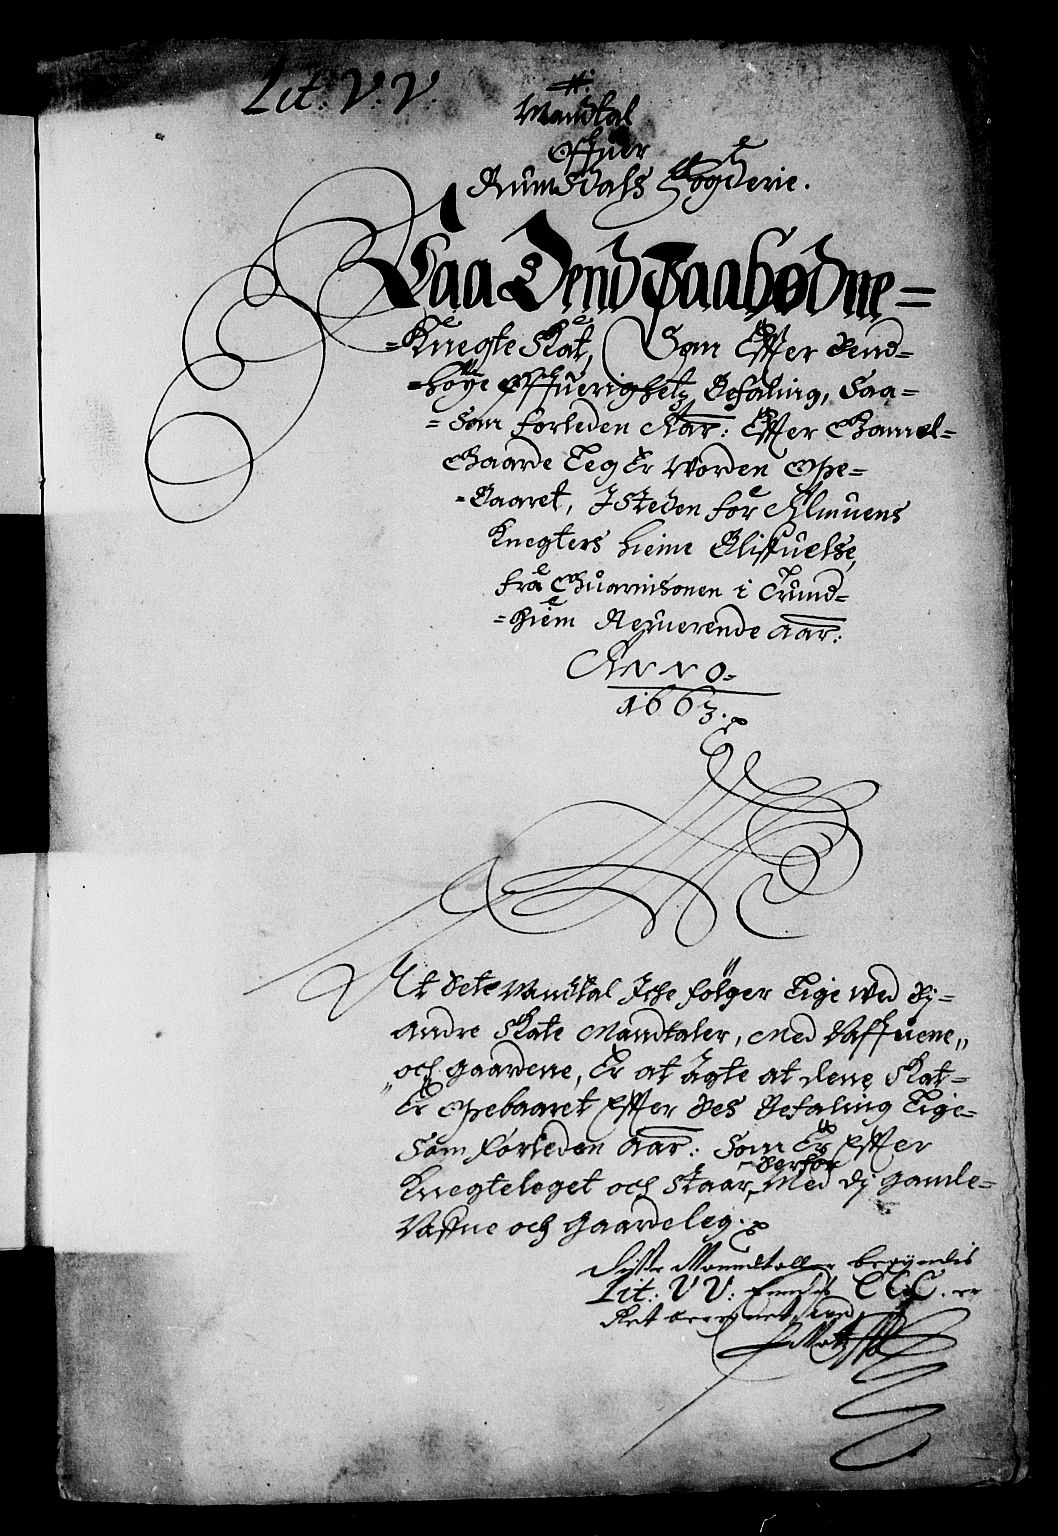 Lit: V: V:
Mandtal
Offuer
Rumsdals Fogderie.
Paa Dend Paabødne=
=Knegte Skat, Som Effter dend=
=høye Øffuerighetz Befaling, Saa=
=som forleden Aar: Effter Gamel=
Gaarde Leg Er Worden Ope=
=Baaret, Isteden for Almuens
Knegters hieme Bliffuelse,
fra Guarnisonen i Trund=
=hiem Neruerende Aar:
ANNO=
1663.
At dete Mandtal Iche følger Lige Wed dj=
Andre Skate Mandtaler, Med Naffnene,,
,,och gaardene, Er at Agte at dene Skat=
Er Opebaaret Effter des Befaling Lige=
Som forleden Aar: Som Er Effter
derfor
Knegteleget och Staar, Med dj gamle=
Naffne och Gaardeleg.
Disse Manndtaller begyndis
Lit: VV: CCC. er